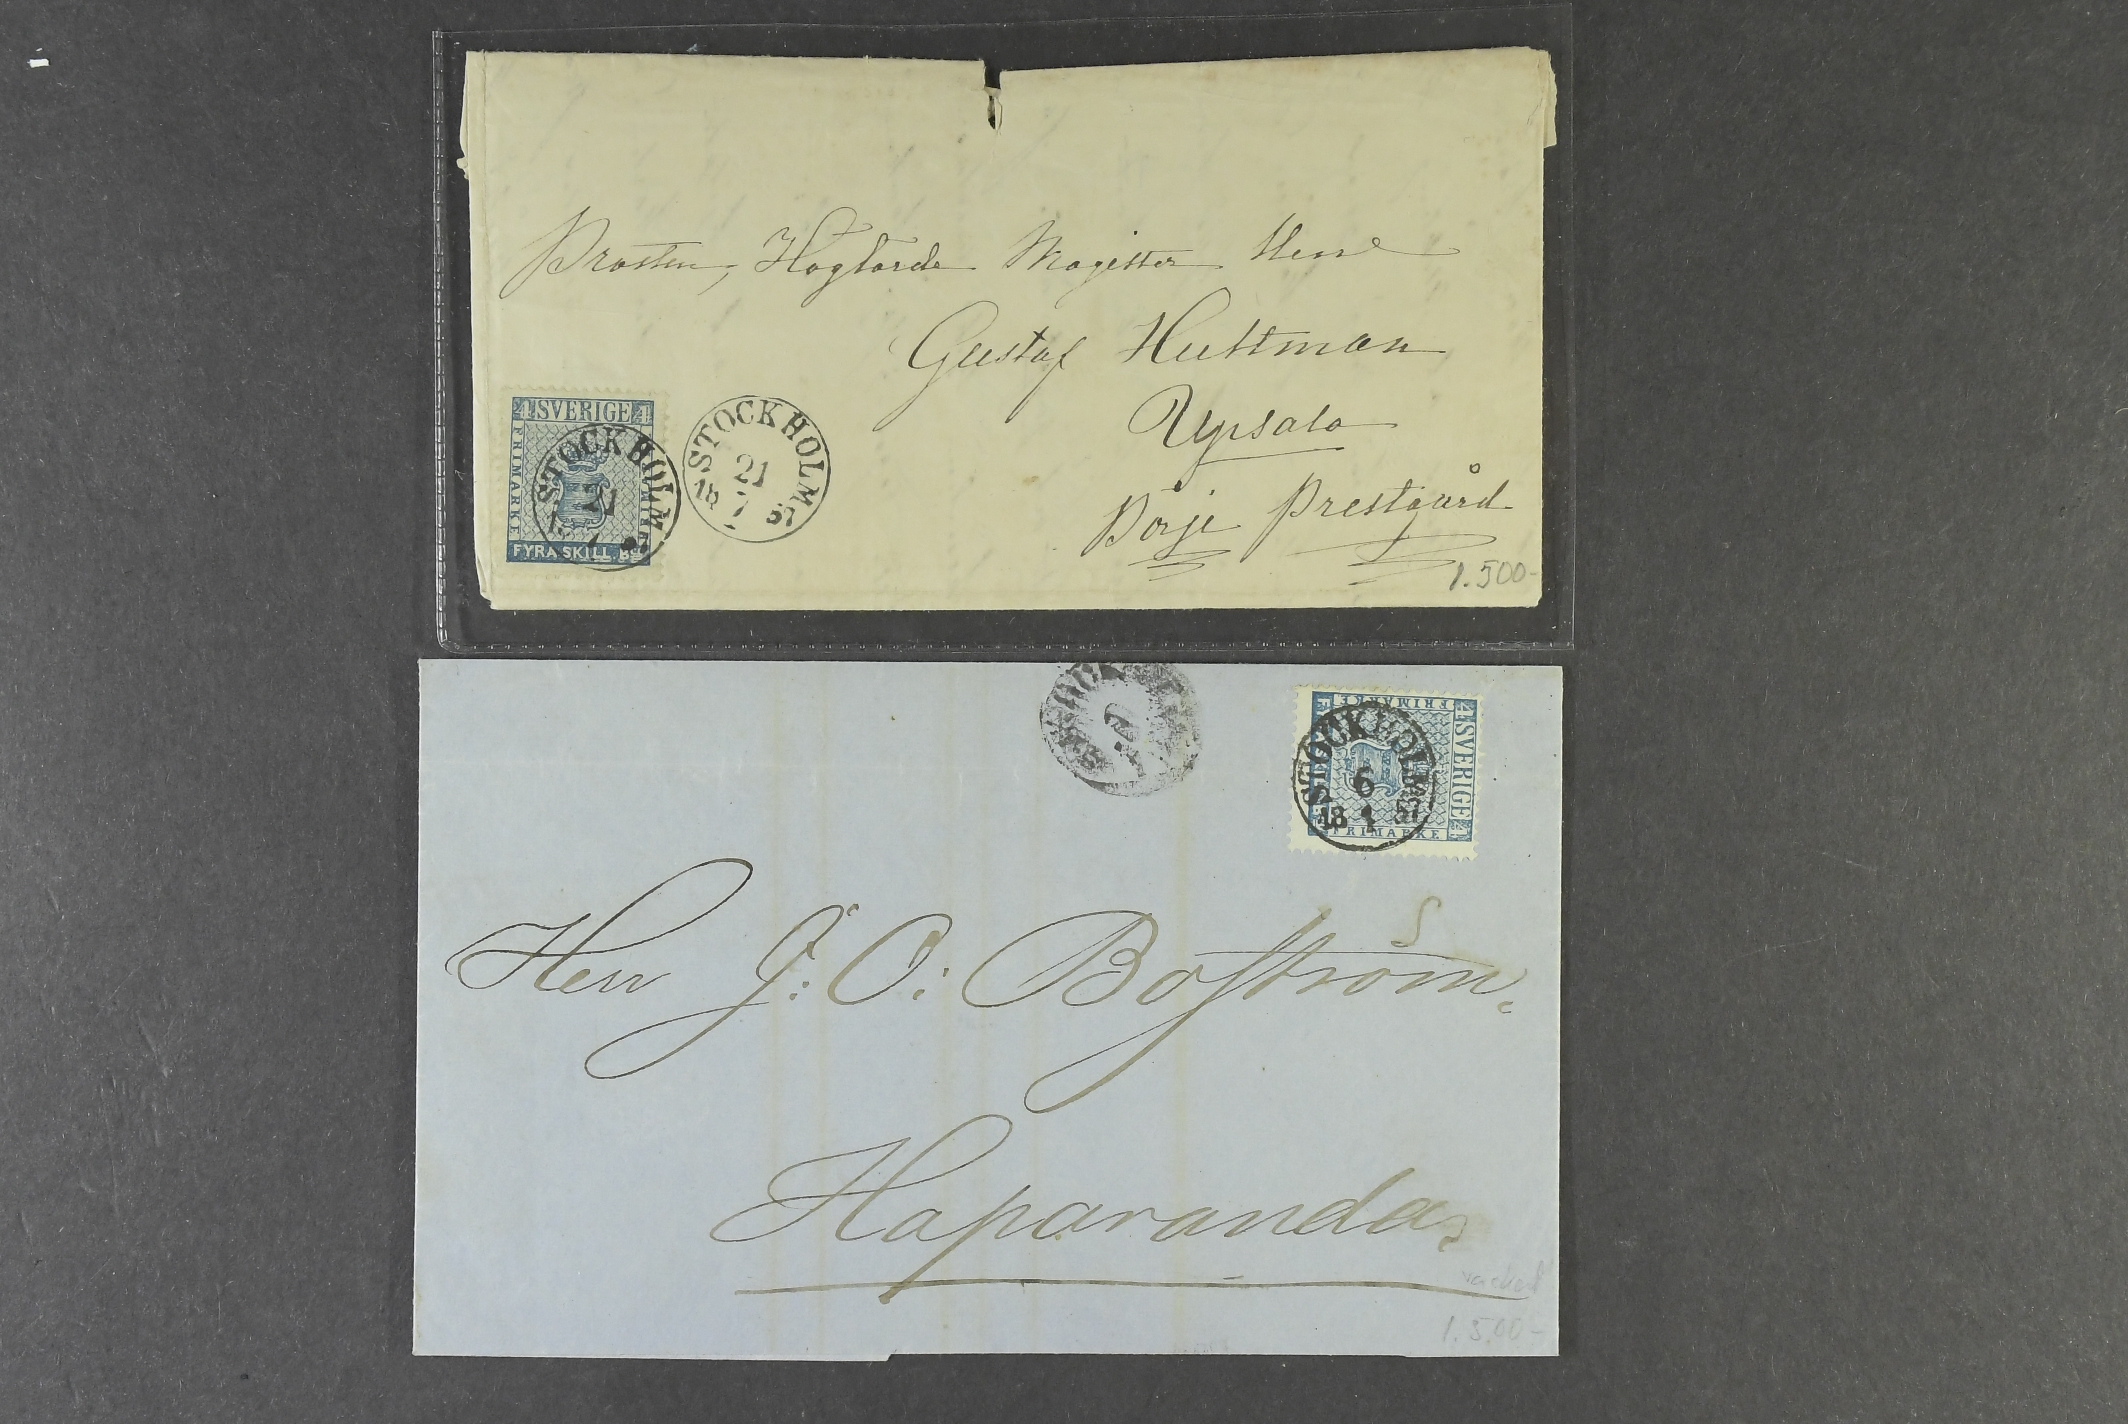 Prosten, Höglärde Magister Herr
Gustaf Hultman
Upsala
Börje Prestgård
1.500-
4 SVERIGE 4
FRIMÄRKE
FRIMÄRKE
FYRA SKILL. BCO
STOCKHOLM
21
STOCKHOLM
21
7
18 57
4 SVERIGE 4
FRIMÄRKE
FRIMÄRKE
STOCKHOLM
6
18 57
Herr J: O: Boström,
Haparanda,
vacker!
1.500-